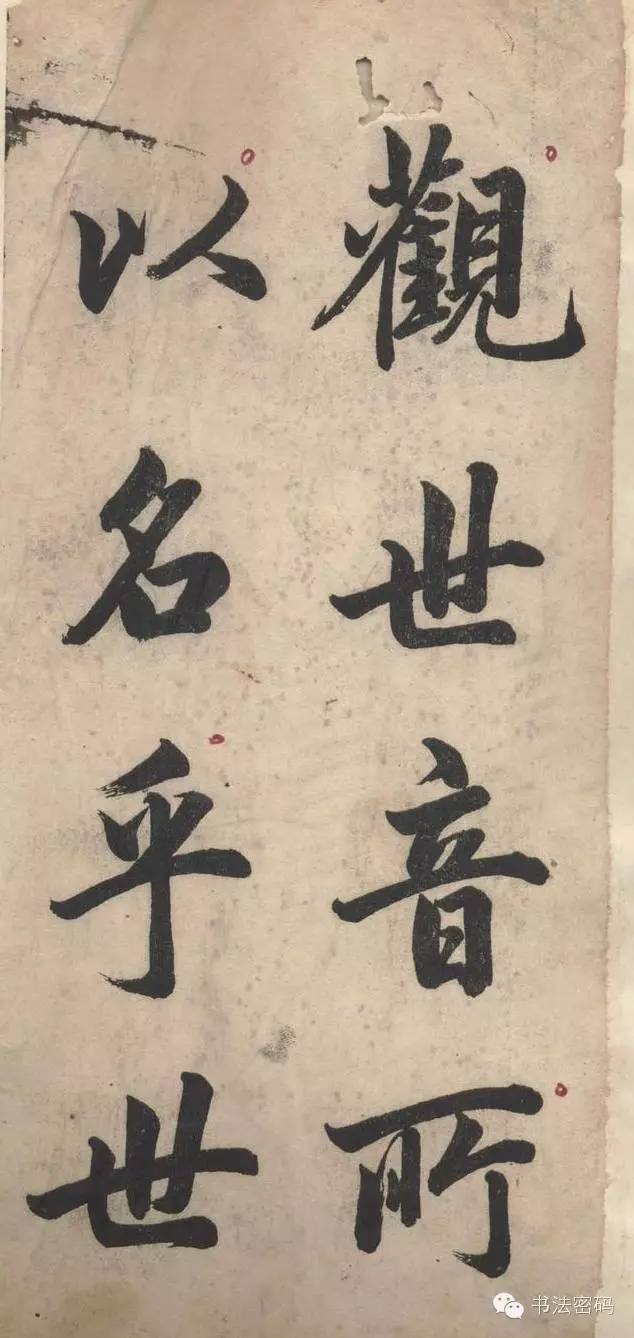 觀世音所
以名乎世
书法密码